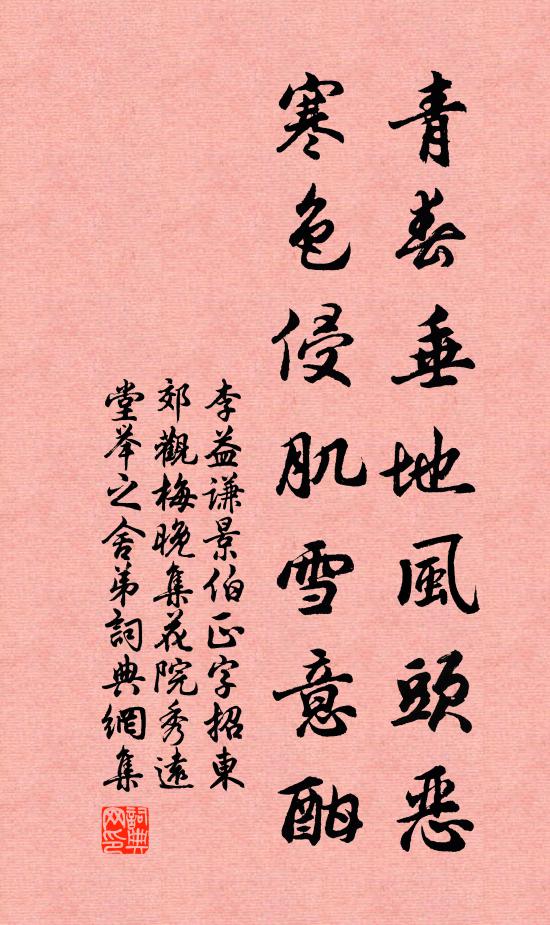 青春垂地風頭惡
寒色侵肌雪意酣
李益謙景伯正字招東
郊觀梅晚集花院秀遠
堂举之舍弟詞典網集
詞典
网印